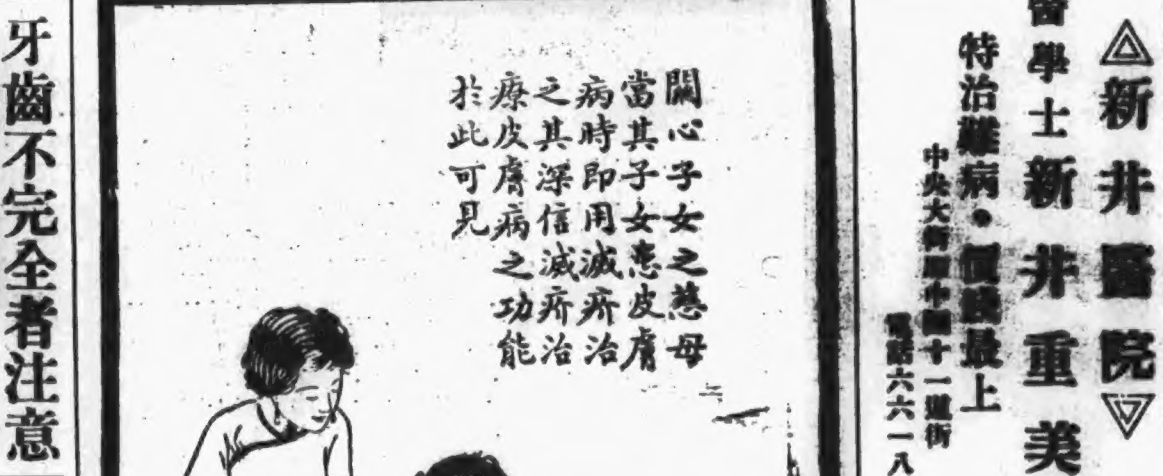 新井醫院
醫學士新井重美
特治難病•價錢最上
中央大街十一道街
電話六六一八
關心子女之慈母
當其子女患皮膚
病時即用滅疥治
之其深信滅疥治
療皮膚病之功能
於此可見
牙齒不完全者注意